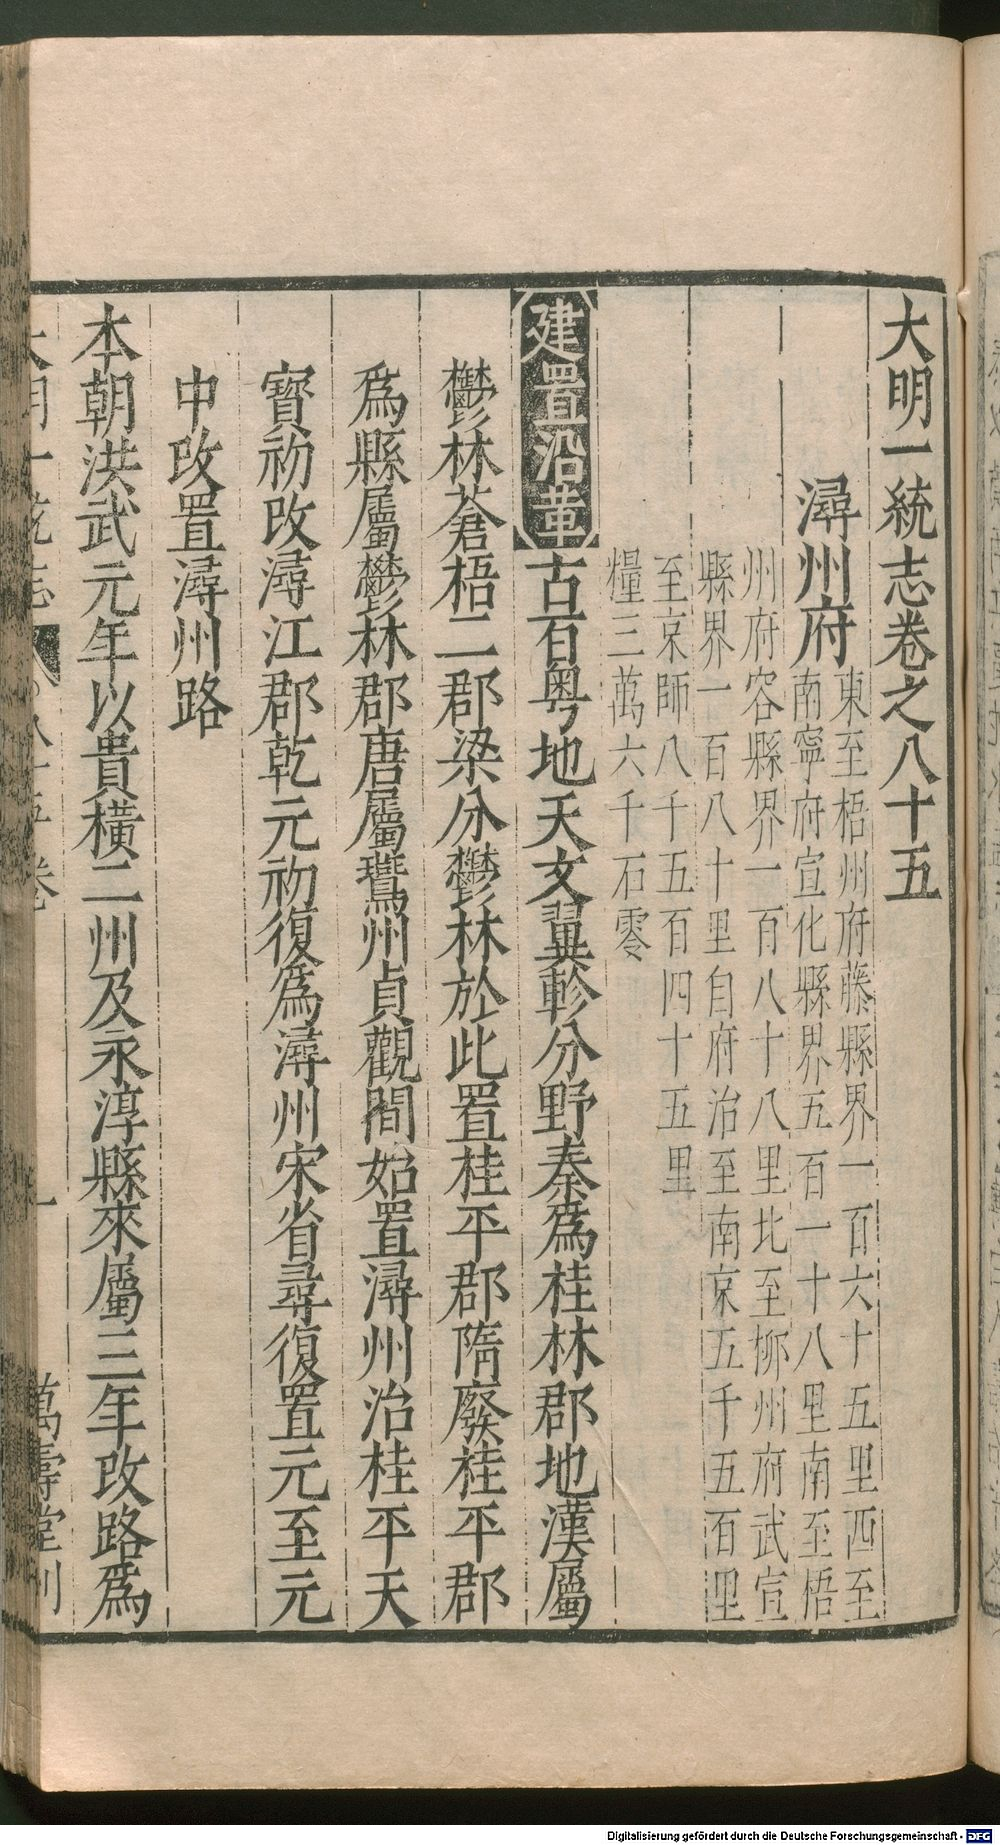 大明一統志卷之八十五
潯州府
東至梧州府藤縣界一百六十五里西至
南寧府宣化縣界五百一十八里南至梧
州府容縣界一百八十八里北至柳州府武宣
縣界一百八十里自府治至南京五千五百里
至京師八千五百四十五里
糧三萬六千石零
建置沿革 古百粤地天文翼軫分野秦為桂林郡地漢屬
鬱林蒼梧二郡梁分鬱林於此置桂平郡隋廢桂平郡
為縣屬鬱林郡唐屬鷰州貞觀間始置潯州治桂平天
寳初改潯江郡乾元初復為潯州宋省尋復置元至元
中改置潯州路
本朝洪武元年以貴橫二州及永淳縣來屬三年改路為
大明一統志 八十五卷 一 萬壽堂刋
Digitalisierung gefördert durch die Deutsche Forschungsgemeinschaft - DFG